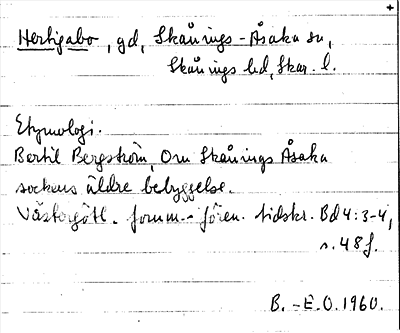 Hertigabo, gd, Skånings-Åsaka sn,
Skånings hd, Skar. l.
Etymologi.
Bertil Bergström, Om Skånings Åsaka
sockens äldre bebyggelse.
Västergötl. fornm.-fören. tidskr. Bd 4:3-4,
s. 48 f.
B.-E.O. 1960.